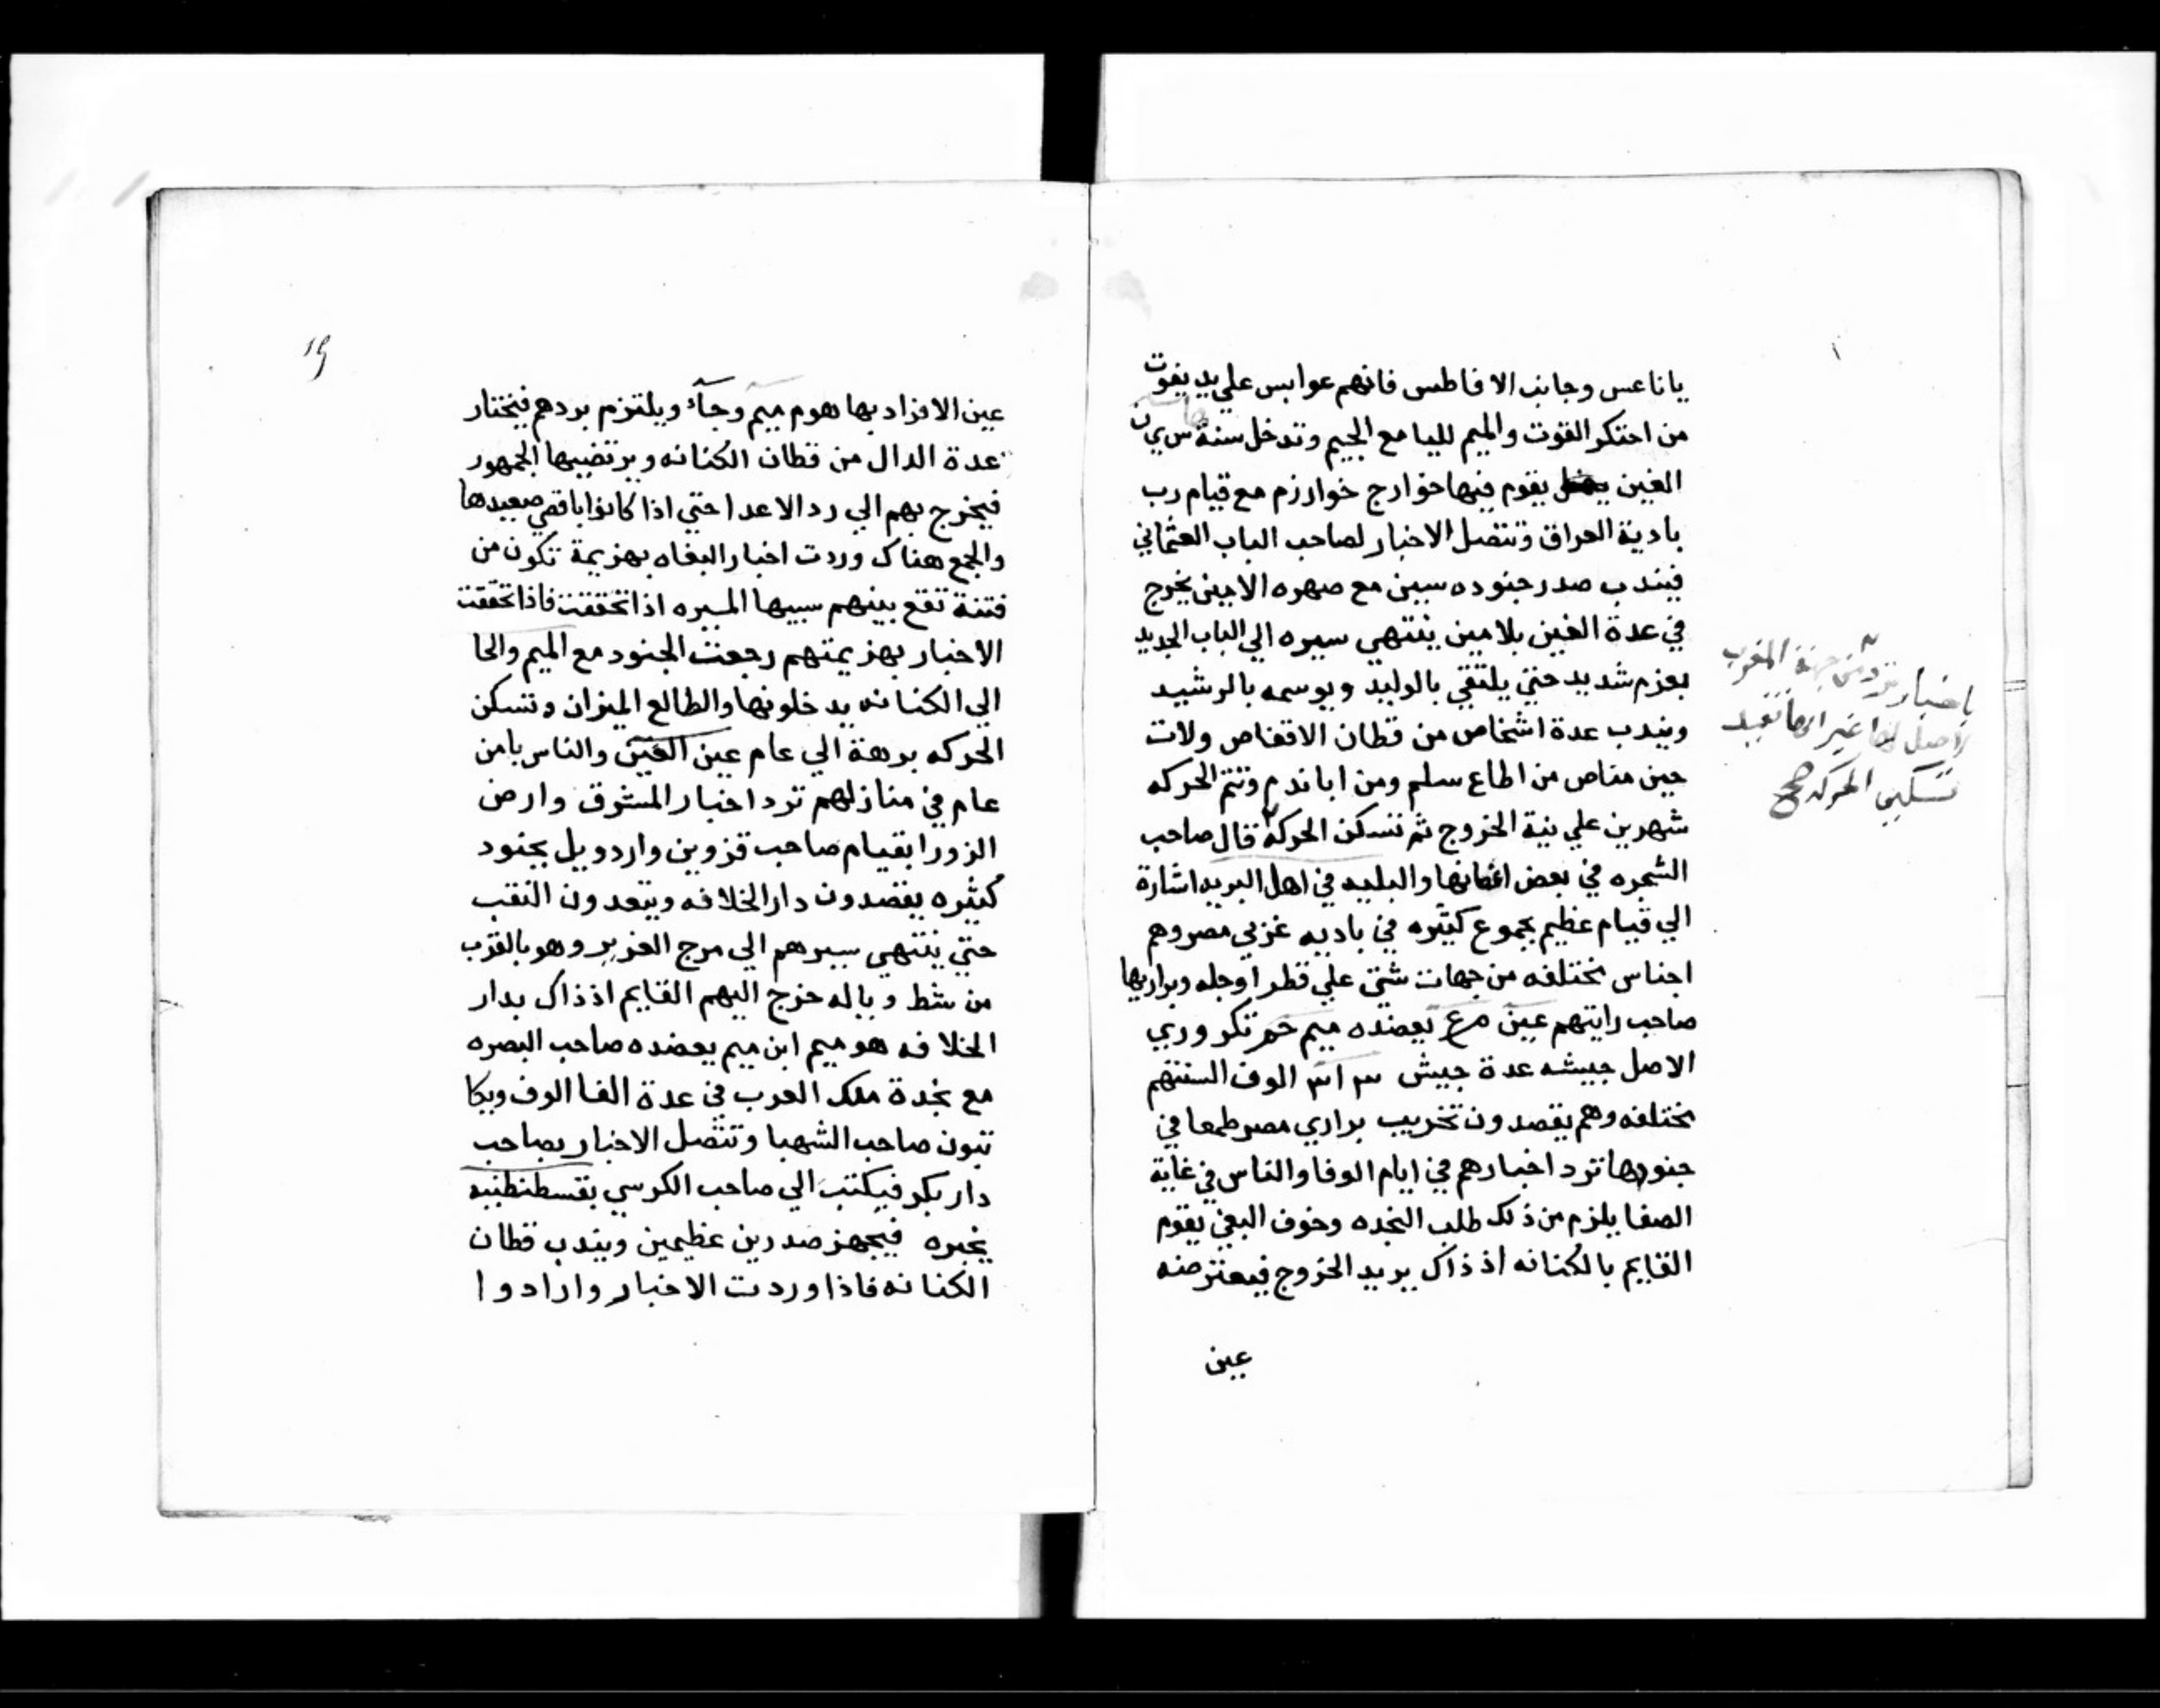 يا ناعس وجانب الافاطس فانهم عوابس علي يد يفوت
من احتكر القوت والميم لليا مع الجيم وتدخل سنة س ي ن
الغين يقوم فيها خوارج خوارزم مع قيام رب
بادية العراق وتتصل الاخبار لصاحب الباب العثماني
فيندب صدر جنوده سين مع صهره الامين يخرج
في عدة الغين بلامين ينتهي سيره الي الباب الجديد
بعزم شديد حتي يلتقي بالوليد ويوسمه بالرشيد
ويندب عدة اشخاص من قطان الاقفاص ولات
حين مناص من اطاع سلم ومن ابا ندم وتتم الحركه
شهرين علي نية الخروج ثم تسكن الحركة قال صاحب
الشجره في بعض والبليه في اهل البريد اشارة
الي قيام عظيم بجموع كثيره في باديه غربي مصر وهم
اجناس مختلفه من جهات شتي علي قطر اوجله وبراريها
صاحب رايتهم عين مع تعضده ميم تكروري
الاصل جيشه عدة جيش الوف السنتهم
مختلفه وهم يقصدون تخريب براري مصر طمعا في
جنودها ترد اخبارهم في ايام الوفا والناس في غاية
الصفا يلزم من ذلك طلب النجده وخوف البغي يقوم
القايم بالكنانه اذ ذاك يريد الخروج فيعترضه
عين
باخبار ترد من جهة المغرب
لا اصل لها غير انها تفيد
تسكين الحركه صح
١٩
عين الافراد بها هو م ميم وحآء ويلتزم بردهم فيختار
عدة الدال من قطان الكنانه ويرتضيها الجمهور
فيخرج بهم الي رد الاعدا حتي اذا كانوا باقصي صعيدها
والجمع هناك وردت اخبار البغاه بهزيمة تكون من
فتنة تقع بينهم سببها الميره اذا تحققت فاذا تحققت
الاخبار بهزيمتهم رجعت الجنود مع الميم والحا
الي الكنانه يدخلونها والطالع الميزان وتسكن
الحركه برهة الي عام عين الغين والناس يامن
عام في منازلهم ترد اخبار المشرق وارض
الزورا بقيام صاحب قزوين واردويل بجنود
كثيره يقصدون دار الخلافه ويتعدون النقب
حتي ينتهي سيرهم الي مرج الغزير وهو بالقرب
من شط وباله خرج اليهم القايم اذ ذاك بدار
الخلافه هو ميم ابن ميم يعضده صاحب البصره
مع نجدة ملك العرب في عدة الفا الوف ويكا
تبون صاحب الشهبا وتتصل الاخبار بصاحب
دار بكر فيكتب الي صاحب الكرسي بقسطنطنيه
يخبره فيجهز صدرين عظيمين ويندب قطان
الكنانه فاذا وردت الاخبار وارادوا